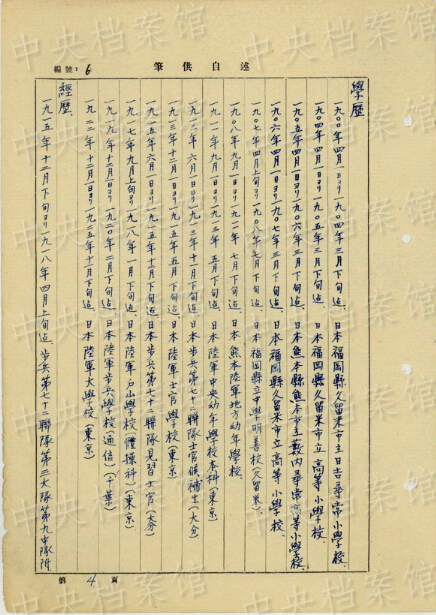 中央档案馆
編號：6
筆供自述
學歷
一九〇〇年四月一日ヨリ一九〇四年三月下旬迄、日本福岡縣久留米市立日吉尋常小學校、
一九〇四年四月一日ヨリ一九〇五年三月下旬迄、日本福岡縣久留米市立高等小學校、
一九〇五年四月一日ヨリ一九〇六年三月下旬迄、日本熊本縣熊本市立藪内尋常高等小學校、
一九〇六年四月一日ヨリ一九〇七年三月下旬迄、日本福岡縣久留米市立高等小學校、
一九〇七年四月上旬ヨリ一九〇八年七月下旬迄、日本福岡縣立中學明善校（久留米）、
一九〇八年九月一日ヨリ一九一一年七月下旬迄、日本熊本陸軍地方幼年學校、
一九一一年九月一日ヨリ一九一三年五月下旬迄、日本陸軍中央幼年學校本科（東京）
一九一三年六月一日ヨリ一九一三年十一月下旬迄、日本步兵第七十二聯隊士官候補生（大分）
一九一三年十二月一日ヨリ一九一五年五月下旬迄、日本陸軍士官學校（東京）
一九一五年六月一日ヨリ一九一五年十二月下旬迄、日本步兵第七十二聯隊見習士官（大分）
一九一七年九月上旬ヨリ一九一八年一月下旬迄、日本陸軍戶山學校體操科（東京）
一九一九年十二月一日ヨリ一九二〇年二月下旬迄、日本陸軍步兵學校通信（千葉）
一九二二年十二月一日ヨリ一九二五年十一月下旬迄、日本陸軍大學校（東京）
經歷、
一九一五年十二月下旬ヨリ一九一八年四月上旬迄、步兵第七十二聯隊第三大隊第九中隊附
第4頁